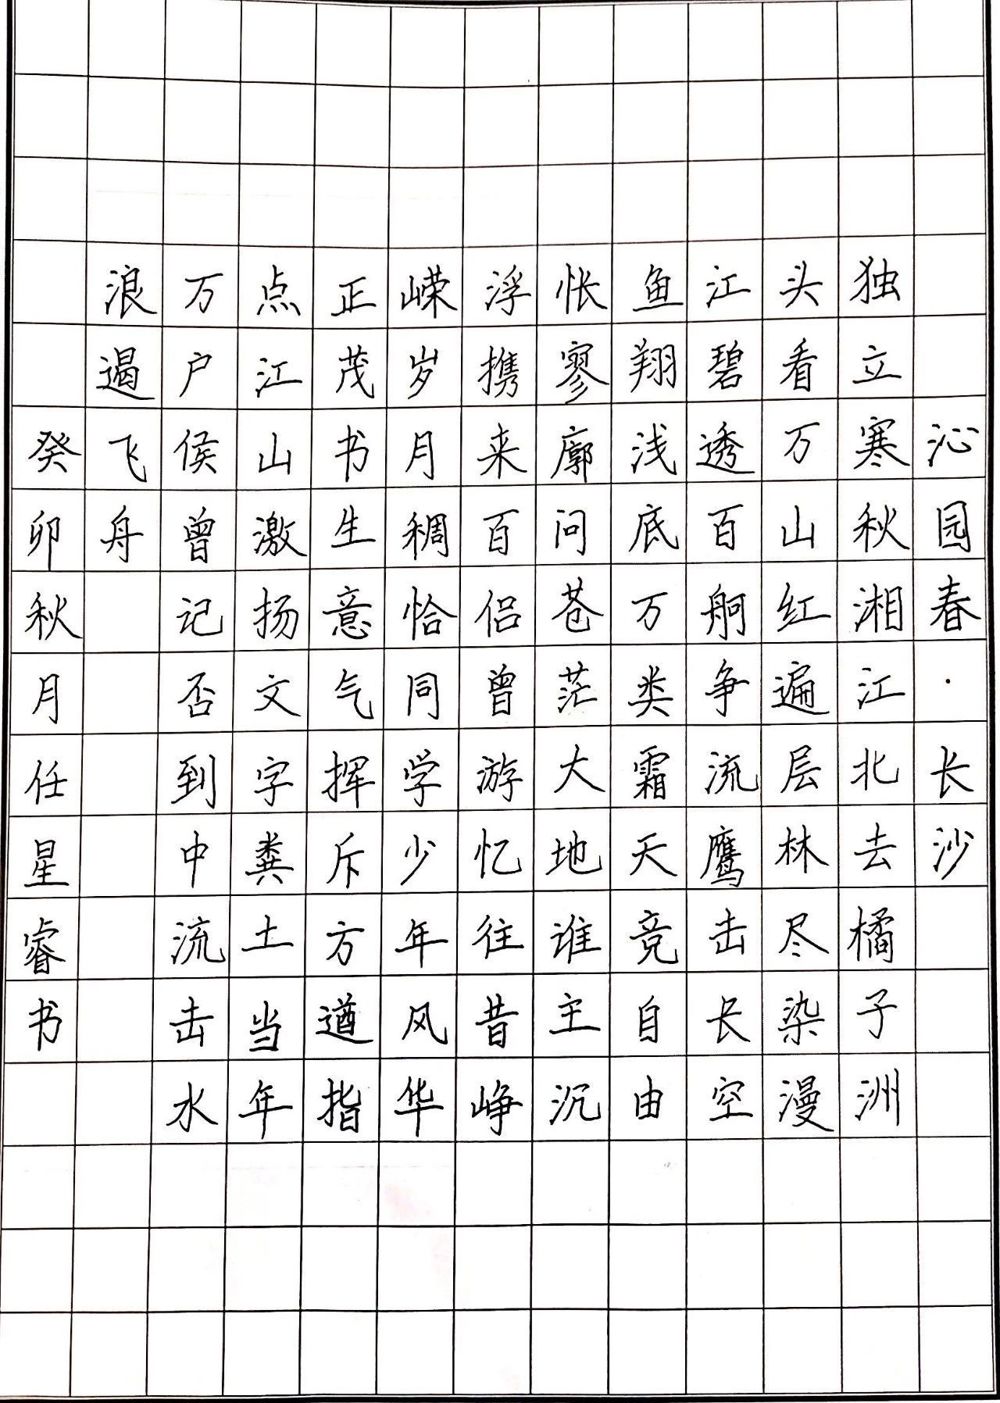 沁园春·长沙
独立寒秋湘江北去橘子洲
头看万山红遍层林尽染漫
江碧透百舸争流鹰击长空
鱼翔浅底万类霜天竞自由
怅寥廓问苍茫大地谁主沉
浮携来百侣曾游忆往昔峥
嵘岁月稠恰同学少年风华
正茂书生意气挥斥方遒指
点江山激扬文字粪土当年
万户侯曾记否到中流击水
浪遏飞舟
癸卯秋月任星睿书